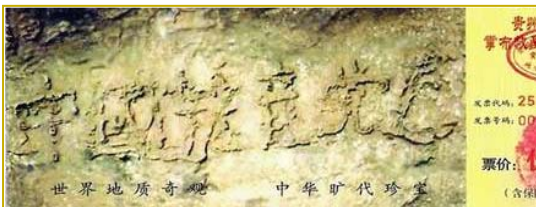 中國共産党亡
世界地质奇观 中华旷代珍宝
贵州
掌布
发票代码: 25
发票号码: 00
票价:
(含保